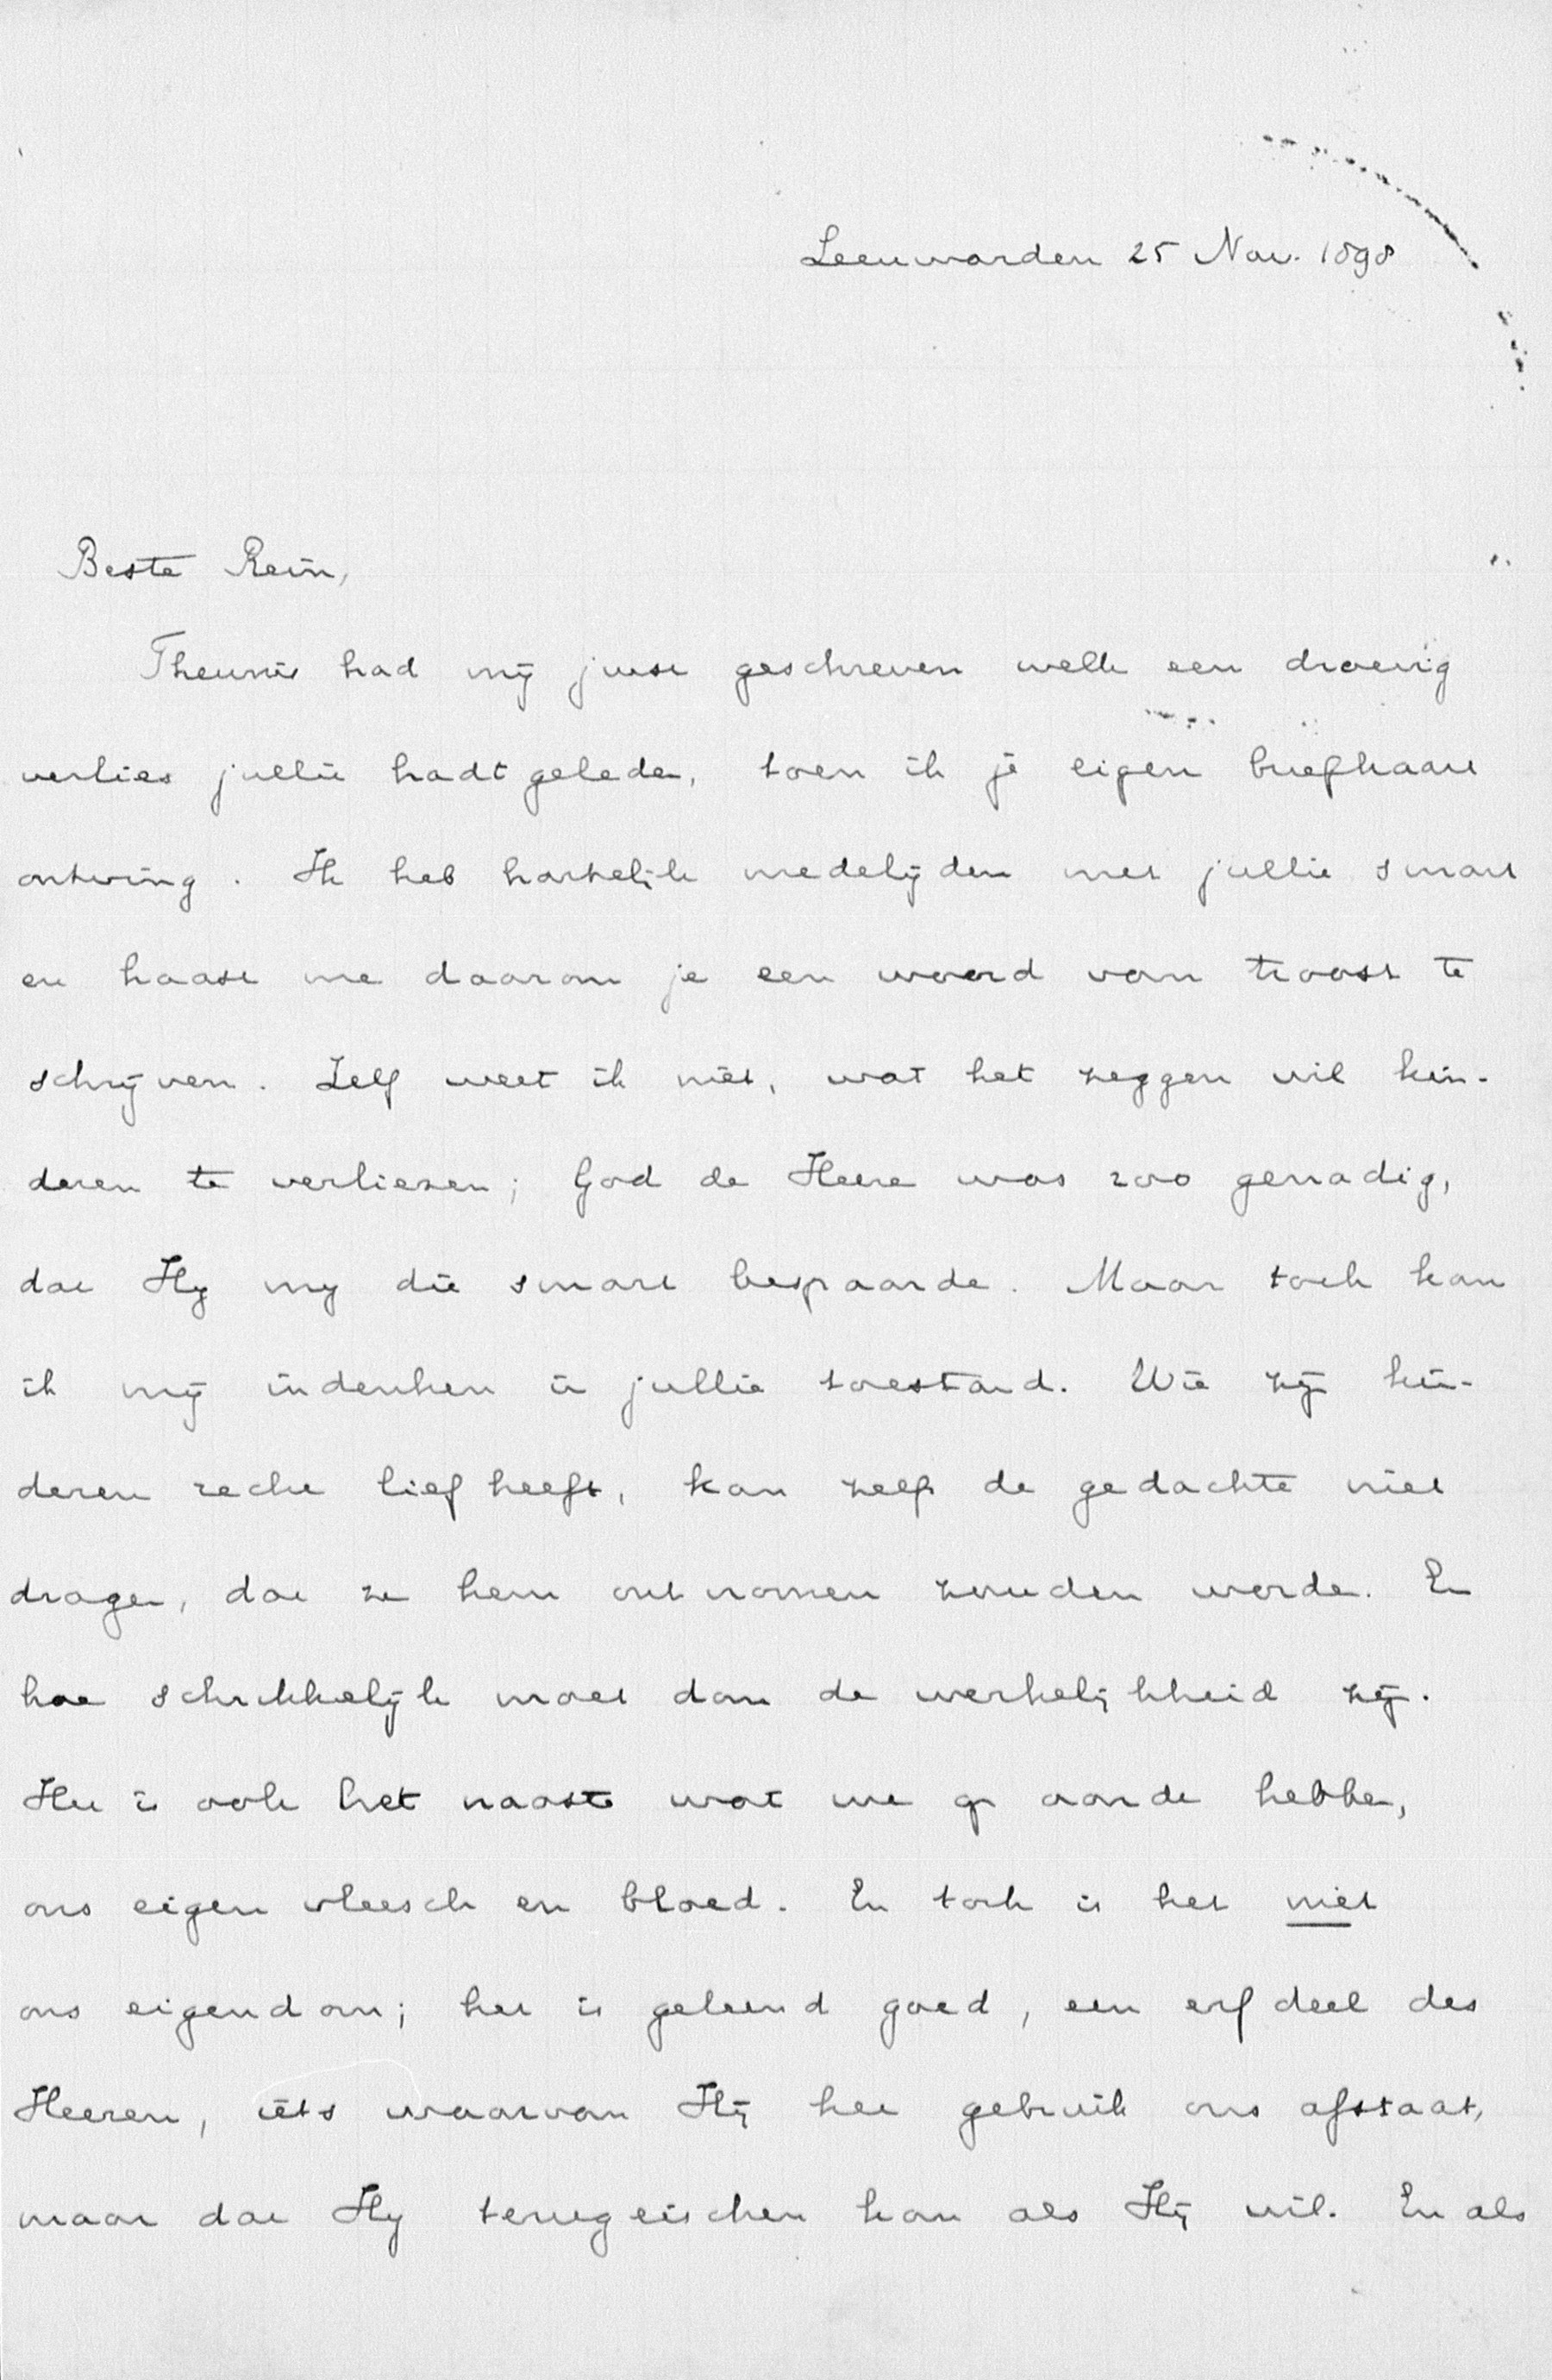 Leeuwarden 25 Nov. 1898
Beste Rein,
Theunis had mij juist geschreven welk een droevig
verlies jullie hadt geleden, toen ik je eigen briefkaart
ontving. Ik heb hartelijk medelijden met jullie smart
en haast me daarom je een woord van troost te
schrijven. Zelf weet ik niet, wat het zeggen wil kin-
deren te verliezen; God de Heere was zoo genadig,
dat Hij mij die smart bespaarde. Maar toch kan
ik mij indenken in jullie toestand. Wie zijn kin-
deren recht lief heeft, kan zelfs de gedachte niet
dragen, dat ze hem ontnomen zouden worden. En
hoe schrikkelijk moet dan de werkelijkheid zijn.
Het is ook het naaste wat we op aarde hebben,
ons eigen vleesch en bloed. En toch is het niet
ons eigendom; het is geleend goed, een erfdeel des
Heeren, iets waarvan Hij het gebruik ons afstaat,
maar dat Hij terugeischen kan als Hij wil. En als